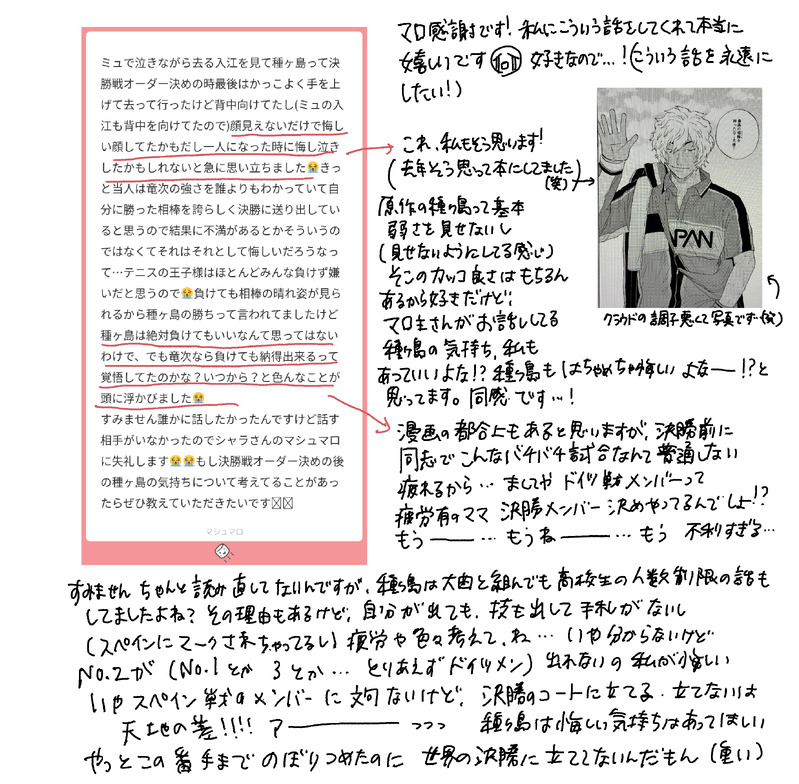 ミュで泣きながら去る入江を見て種ヶ島って決
勝戦オーダー決めの時最後はかっこよく手を上
げて去って行ったけど背中向けてたし(ミュの入
江も背中を向けてたので)顔見えないだけで悔し
い顔してたかもだし一人になった時に悔し泣き
したかもしれないと急に思い立ちました😭きっ
と当人は竜次の強さを誰よりもわかっていて自
分に勝った相棒を誇らしく決勝に送り出している
と思うので結果に不満があるとかそういうの
ではなくてそれはそれとして悔しいだろうなっ
て…テニスの王子様はほとんどみんな負けず嫌
いだと思うので😭負けても相棒の晴れ姿が見ら
れるから種ヶ島の勝ちって言われてましたけど
種ヶ島は絶対負けてもいいなんて思ってはない
わけで、でも竜次なら負けても納得出来るって
覚悟してたのかな?いつから?と色んなことが
頭に浮かびました😭
すみません誰かに話したかったんですけど話す
相手がいなかったのでシャラさんのマシュマロ
に失礼します😭😭もし決勝戦オーダー決めの後
の種ヶ島の気持ちについて考えてることがあっ
たらぜひ教えていただきたいです
マシュマロ
マロ感謝です!私にこういう話をしてくれて本当に
嬉しいです 好きなので…!(こういう話を永遠に
したい!)
これ、私もそう思います!
(去年そう思って本にしてました(笑)
JAPAN
クラウドの調子悪くて写真です…(笑)
原作の種ヶ島って基本
弱さを見せないし
(見せないようにしてる感じ)
そこのカッコ良さはもちろん
あるから好きだけど、
マロ主さんがお話ししてる
種ヶ島の気持ち、私も
あっていいよな!?種ヶ島もはちゃめちゃ悔しいよなー!?と
思ってます。同感です…!
漫画の都合上もあると思いますが、決勝前に
同志でこんなバチバチ試合なんて普通しない
疲れるから… ましてやドイツ戦メンバーって
疲労有のママ 決勝メンバー決めやってるんでしょ!?
もうー… もうねー… もう 不利すぎる…
すみません ちゃんと読み直してないんですが、種ヶ島は大曲と組んでも高校生の人数制限の話も
してましたよね?その理由もあるけど、自分が出ても、技も出して手札がないし
(スペインにマークされちゃってるし)疲労や色々考えて、ね… いや分からないけど
No.2が(No.1とか 3とか… とりあえずドイツメン)出れないの私が悔しい
いやスペイン戦のメンバーに文句ないけど、決勝のコートに立てる・立てないは
天地の差!!!!アーーーっっっ 種ヶ島は悔しい気持ちはあってほしい
やっとこの番手までのぼりつめたのに 世界の決勝に立ててないんだもん(重い)